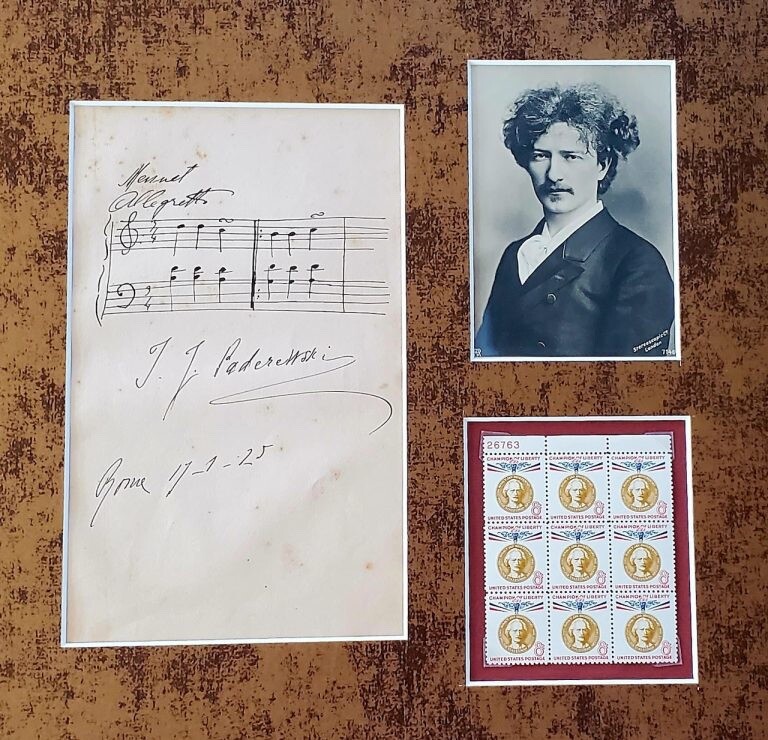 Menuet
Allegretto
I. J. Paderewski
Rome 17-1-25
Stereoscopic Co
London
7148
26763
CHAMPION OF LIBERTY CHAMPION OF LIBERTY CHAMPION OF LIBERTY
8¢ 8¢ 8¢
UNITED STATES POSTAGE UNITED STATES POSTAGE UNITED STATES POSTAGE
CHAMPION OF LIBERTY CHAMPION OF LIBERTY CHAMPION OF LIBERTY
8¢ 8¢ 8¢
UNITED STATES POSTAGE UNITED STATES POSTAGE UNITED STATES POSTAGE
CHAMPION OF LIBERTY CHAMPION OF LIBERTY CHAMPION OF LIBERTY
8¢ 8¢ 8¢
UNITED STATES POSTAGE UNITED STATES POSTAGE UNITED STATES POSTAGE